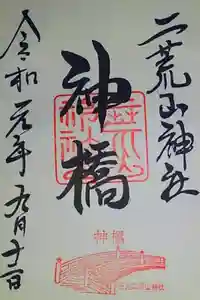 二荒山神社
神橋
令和元年九月十一日
神橋